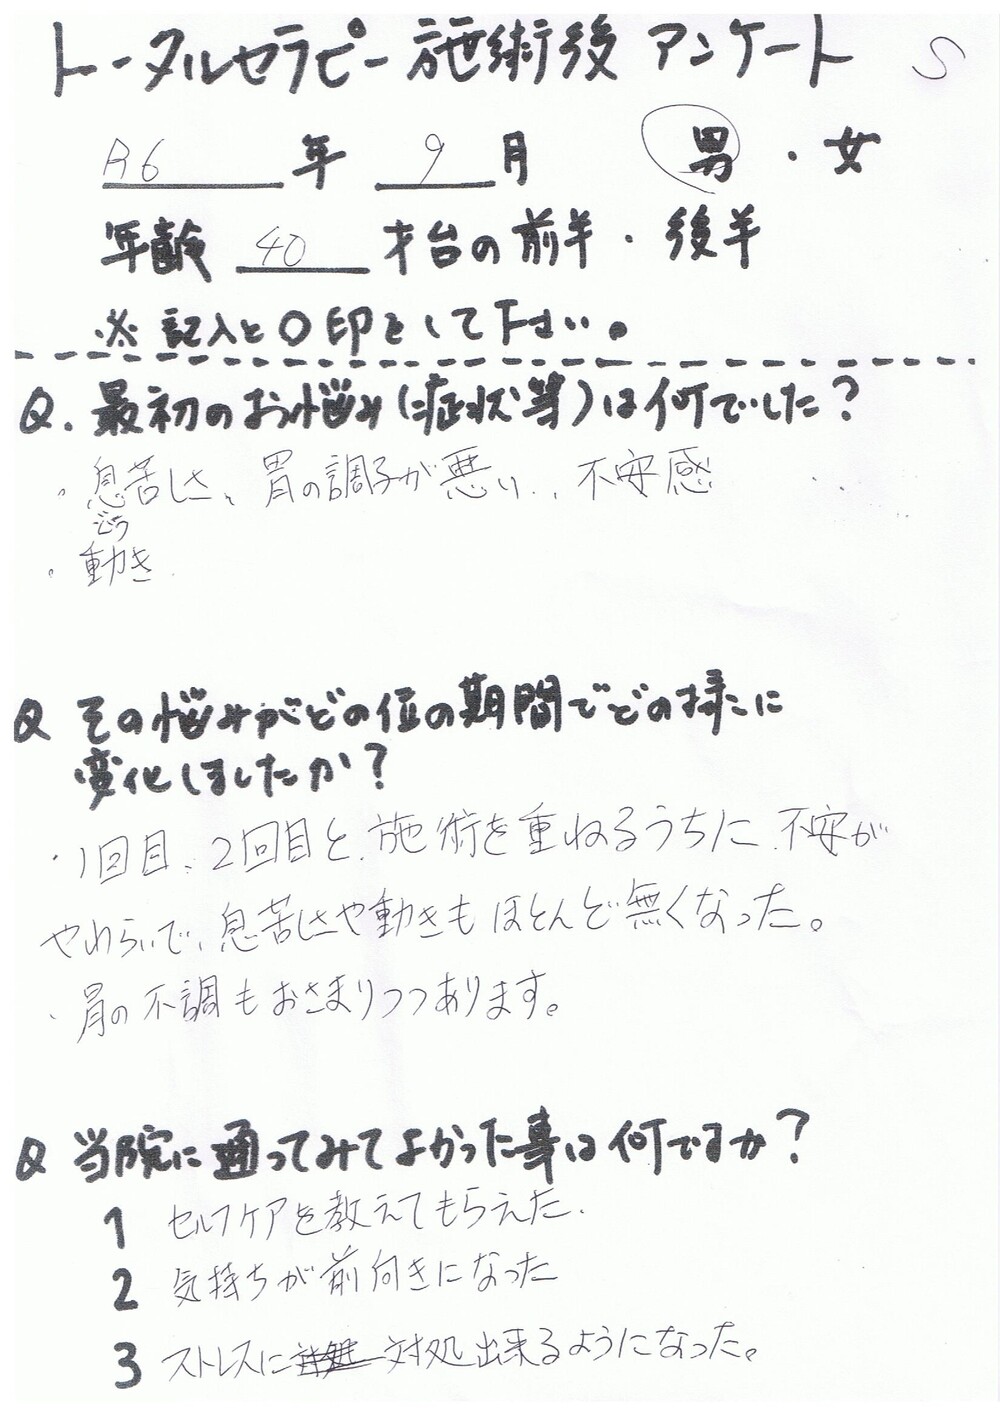 トータルセラピー施術後 アンケート S
R6 年 9 月 男 ・ 女
年齢 40 才台の前半 ・ 後半
※ 記入と〇印をして下さい。
Q. 最初のお悩み(症状等)は何でしたか?
・息苦しさ、胃の調子が悪い、不安感
どう
・動き
Q その悩みがどの位の期間でどの様に
変化しましたか?
・1回目、2回目と、施術を重ねるうちに、不安が
やわらいで、息苦しさや動きもほとんど無くなった。
・胃の不調もおさまりつつあります。
Q 当院に通ってみてよかった事は何ですか?
1 セルフケアを教えてもらえた。
2 気持ちが前向きになった
3 ストレスに 対処出来るようになった。